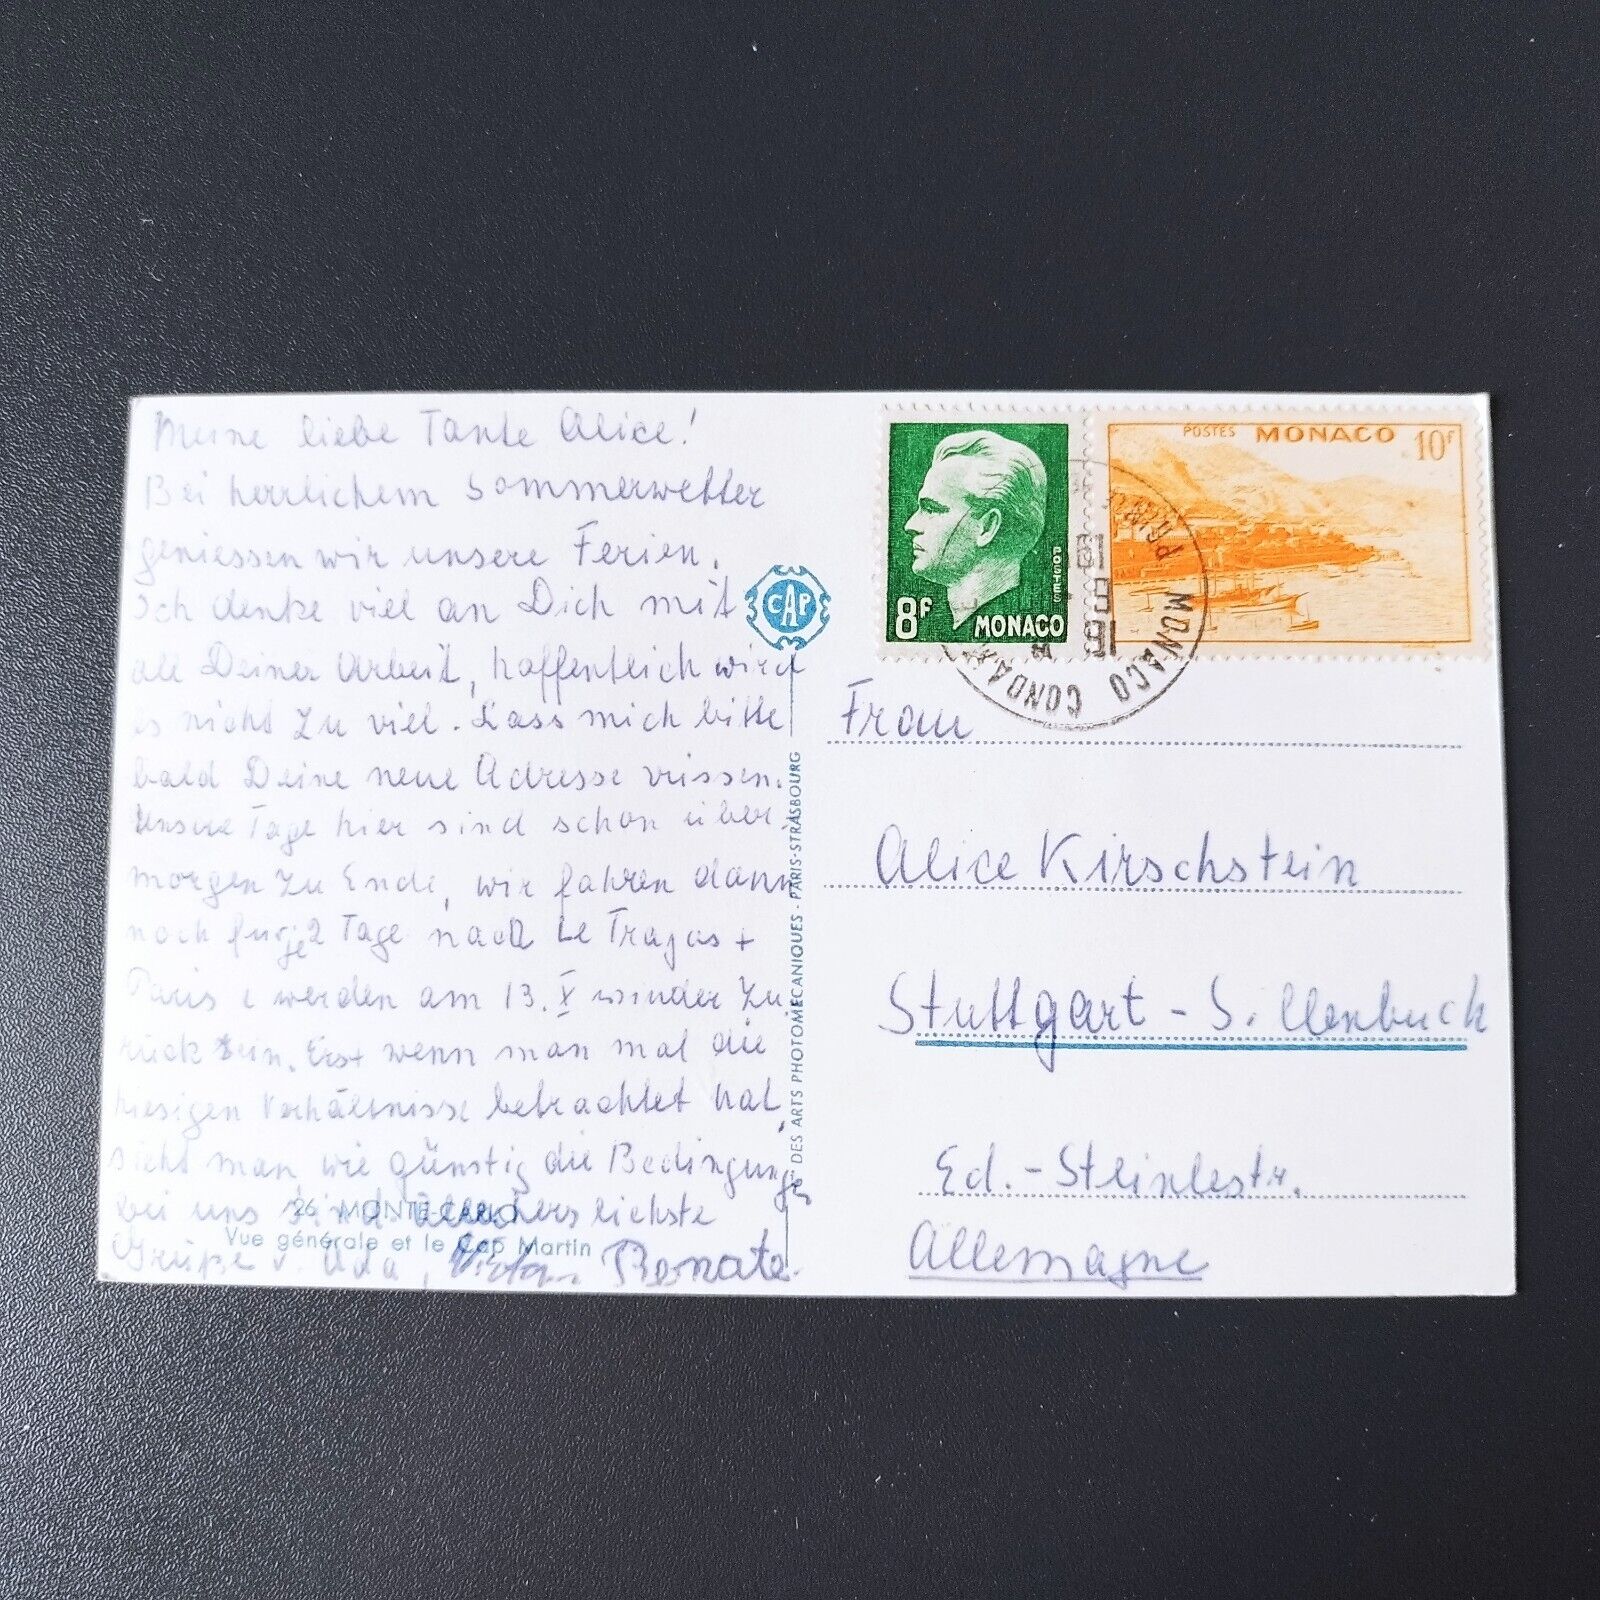 Meine liebe Tante Alice!
Bei herrlichem Sommerwetter
geniessen wir unsere Ferien.
Ich denke viel an Dich mit
all Deiner Arbeit, hoffentlich wird
es nicht zu viel. Lass mich bitte
bald Deine neue Adresse wissen.
Unsere Tage hier sind schon über-
morgen zu Ende, wir fahren dann
noch für je 2 Tage nach Le Trayas +
Paris & werden am 13. X wieder zu
rück sein. Erst wenn man mal die
hiesigen Verhältnisse betrachtet hat,
sieht man, wie günstig die Bedingungen
bei uns sind. Allerherzlichste
Grüße v. Renate.
26. MONTE-CARLO
Vue générale et le Cap Martin
CAP
DES ARTS PHOTOMÉCANIQUES - PARIS-STRASBOURG
POSTES
8F MONACO
POSTES MONACO 10F
MONACO CONDAMINE
Frau
Alice Kirschstein
Stuttgart - Sillenbuch
Ed.-Steinlestr.
Allemagne